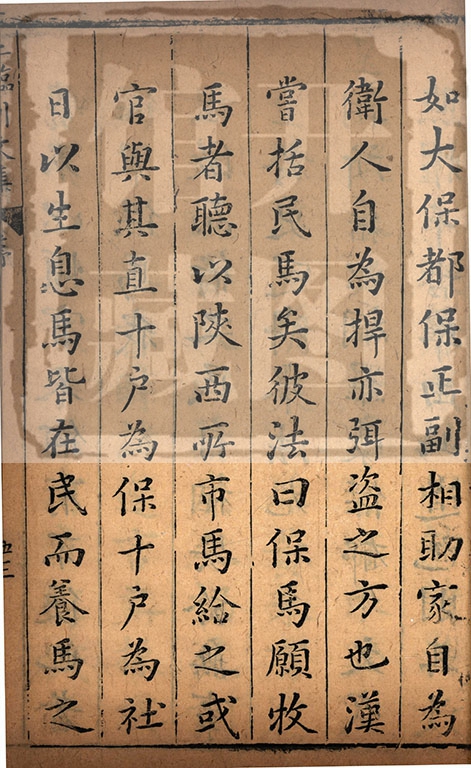 如大保都保正副相助家自為
衛人自為捍亦弭盜之方也漢
嘗括民馬矣彼法曰保馬願牧
馬者聽以陝西所市馬給之或
官與其直十戶為保十戶為社
日以生息馬皆在民而養馬之
臨川文集